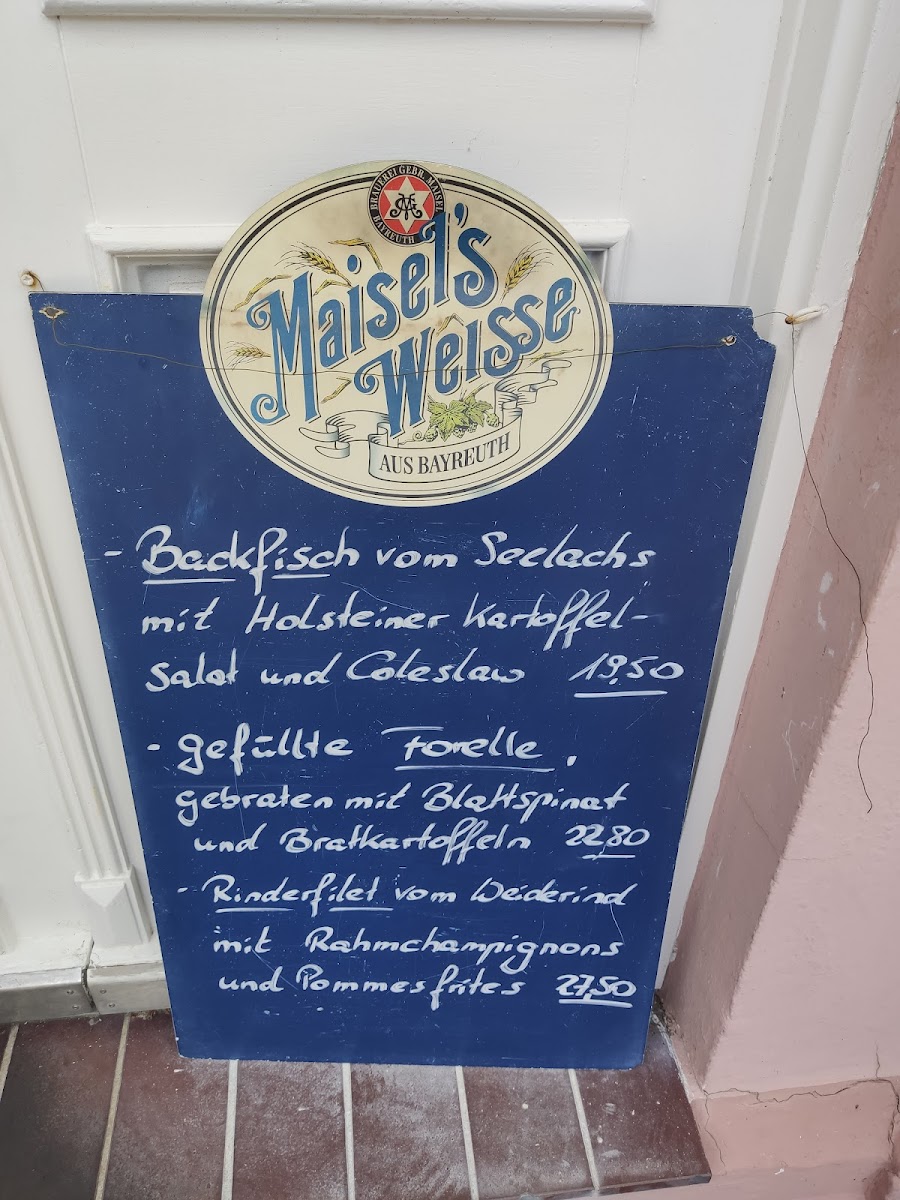 BRAUEREI GEBR. MAISEL
BAYREUTH
Maisel's
Weisse
AUS BAYREUTH
- Backfisch vom Seelachs
mit Holsteiner Kartoffel-
Salat und Coleslaw 19,50
- gefüllte Forelle,
gebraten mit Blattspinat
und Bratkartoffeln 22,80
- Rinderfilet vom Weiderind
mit Rahmchampignons
und Pommes frites 27,50